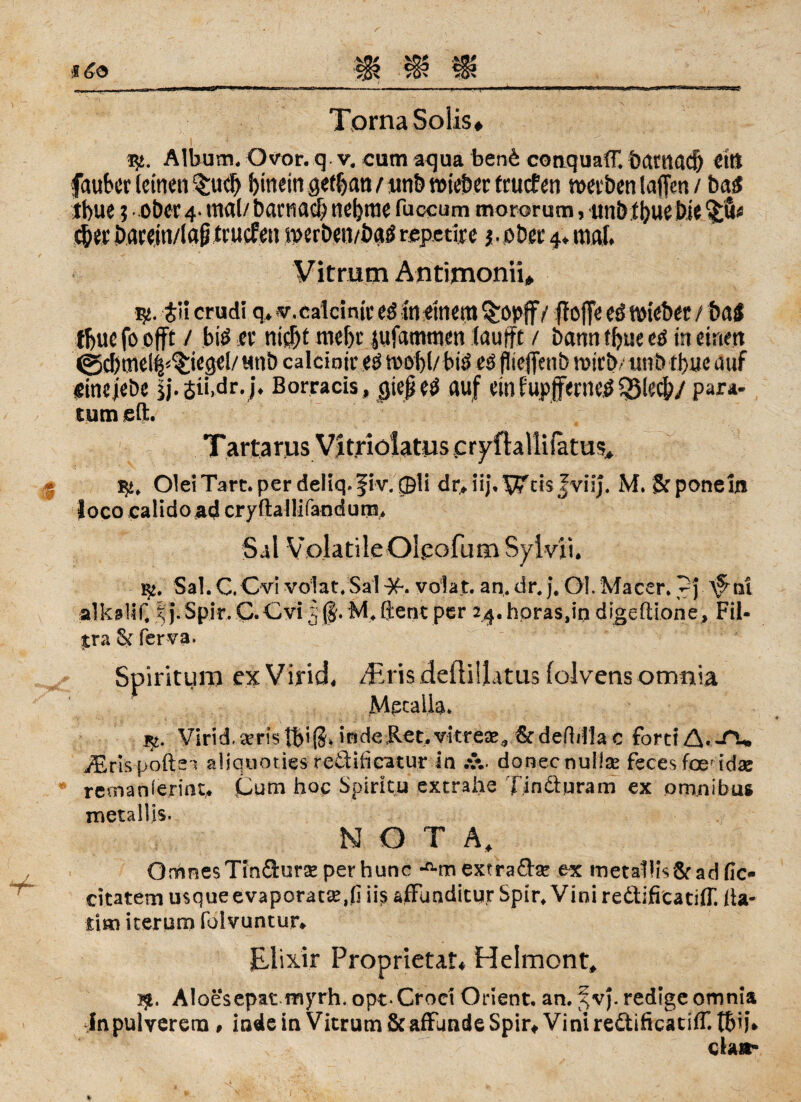 160
Torna Solis.
℞. Album. Ovor. q. v. cum aqua benè conquaſſ. darnach ein
ſauber leinen Tuch hinein gethan / und wieder trucken werden laſſen / das
thue 3. oder 4. mal / darnach nehme ſuccum mororum, und thue die Tü-
cher darein / laß trucken werden / das repetire 3. oder 4. mal.
Vitrum Antimonii.
℞. ♁ii crudi q. v. calcinir es in einem Topff / ſtoſſe es wieder / das
thue ſo offt / bis er nicht mehr zuſammen laufft / dann thue es in einen
Schmeltz-Tiegel / und calcinir es wohl / bis es flieſſend wird / und thue auf
eine jede ʒj. ♁ii, dr. j. Borracis, gieß es auf ein kupffernes Blech / para-
tum eſt.
Tartarus Vitriolatus cryſtalliſatus.
℞. Olei Tart. per deliq. ℥iv. ⊕li dr. iij. ▽tis ℥viij. M. & pone in
loco calido ad cryſtalliſandum.
Sal Volatile Oleoſum Sylvii.
℞. Sal. C. Cvi volat. Sal ✱. volat. an. dr. j. Ol. Macer. ℈j ni
alkaliſ. ℥j. Spir. C. Cvi ℥ß. M. ſtent per 24. horas, in digeſtione, Fil-
tra & ſerva.
Spiritum ex Virid. Æris deſtillatus ſolvens omnia
Metalla.
℞. Virid. æris ℔iß. inde Ret. vitreæ, & deſtilla c forti △.
Æris poſtea aliquoties rectificatur in donec nullæ feces fœtidæ
remanſerint. Cum hoc Spiritu extrahe Tincturam ex omnibus
metallis.
NOTA.
Omnes Tincturæ per hunc m extractæ ex metallis & ad ſic-
citatem usque evaporatæ, ſi iis affunditur Spir. Vini rectificatiſſ. ſta-
tim iterum ſolvuntur.
Elixir Proprietat. Helmont.
℞. Aloës epat. myrrh. opt. Croci Orient. an. ℥vj. redige omnia
in pulverem, inde in Vitrum & affunde Spir. Vini rectificatiſſ. ℔ij.
claus-